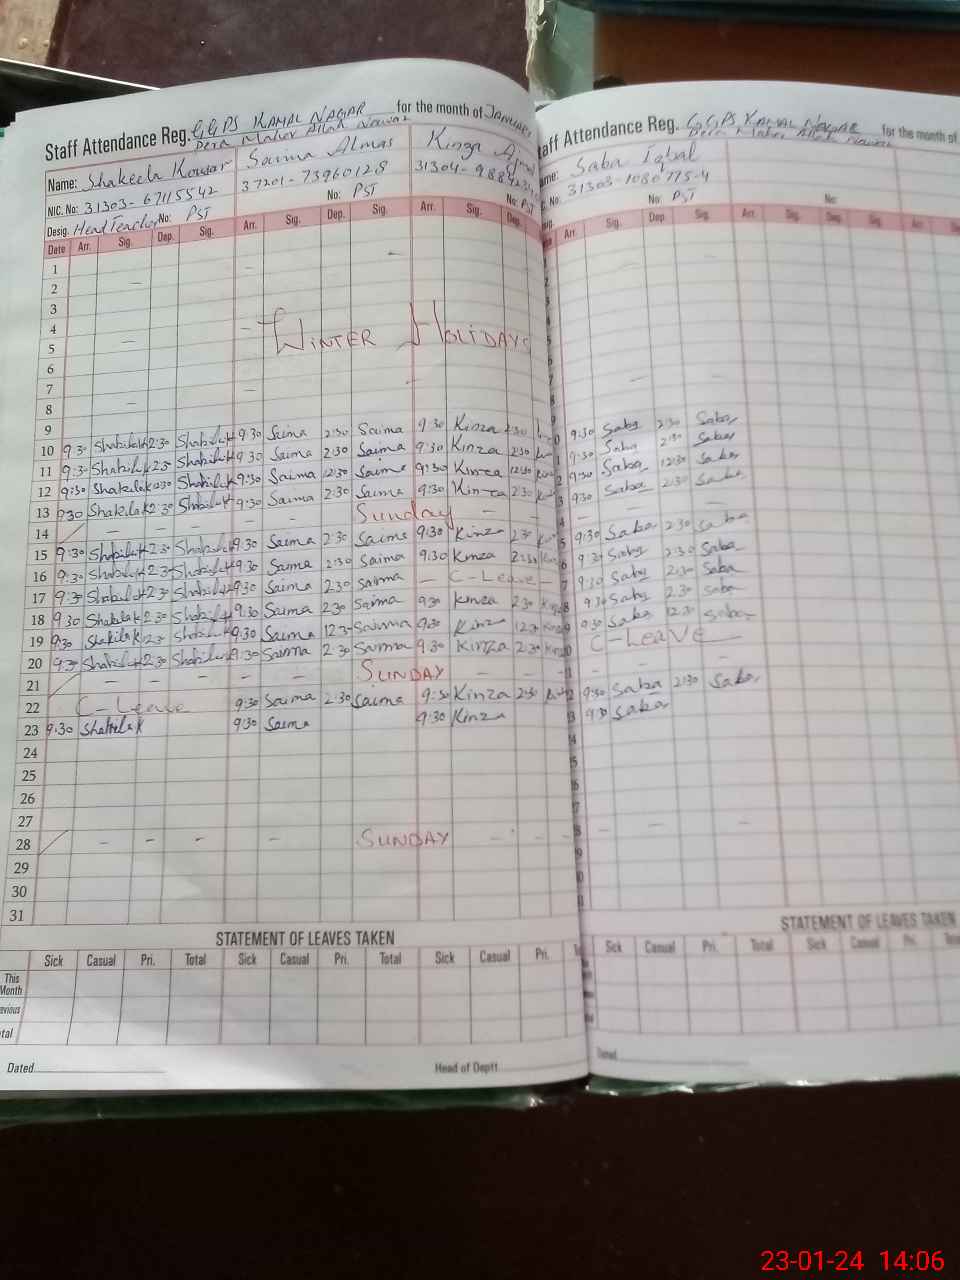 Staff Attendance Reg. GGPS KAMAL NAGAR for the month of January
Dera Maher Allah Nawaz
Name: Shakeela Kousar Saima Almas Kinza
NIC. No: 31303-6711554 2 37201-7396012 8 31304-
Desig. Head Teacher No: PST No: PST No: PST
Date Arr. Sig. Dep. Sig. Arr. Sig. Dep. Sig. Arr. Sig. Dep.
1
2
3
4
WINTER HOLIDAYS
5
6
7
8
9
10 9:30 Shakila K 2:30 Shakila K 9:30 Saima 2:30 Saima 9:30 Kinza 2:30
11 9:30 Shakila K 2:30 Shakila K 9:30 Saima 2:30 Saima 9:30 Kinza 2:30
12 9:30 Shakila K 12:30 Shakila K 9:30 Saima 12:30 Saima 9:30 Kinza 12:30
13 9:30 Shakila K 2:30 Shakila K 9:30 Saima 2:30 Saima 9:30 Kinza 2:30
14 — — — — — — Sunday — —
15 9:30 Shakila K 2:30 Shakila K 9:30 Saima 2:30 Saima 9:30 Kinza 2:30
16 9:30 Shakila K 2:30 Shakila K 9:30 Saima 2:30 Saima 9:30 Kinza 2:30
17 9:30 Shakila K 2:30 Shakila K 9:30 Saima 2:30 Saima — C-Leave —
18 9:30 Shakila K 2:30 Shakila K 9:30 Saima 2:30 Saima 9:30 Kinza 2:30
19 9:30 Shakila K 12:30 Shakila K 9:30 Saima 12:30 Saima 9:30 Kinza 12:30
20 9:30 Shakila K 2:30 Shakila K 9:30 Saima 2:30 Saima 9:30 Kinza 2:30
21 — — — — — — SUNDAY — —
22 C-Leave 9:30 Saima 2:30 Saima 9:30 Kinza 2:30
23 9:30 Shakila K 9:30 Saima 9:30 Kinza
24
25
26
27
28 — — — — SUNDAY — — —
29
30
31
STATEMENT OF LEAVES TAKEN
Sick Casual Pri. Total Sick Casual Pri. Total Sick Casual Pri.
This
Month
evious
tal
Dated Head of Deptt
taff Attendance Reg. GGPS KAMAL NAGAR for the month of
Dera Maher Allah Nawaz
ame: Saba Iqbal
No: 31303-1080775-4
No: PST No:
Arr. Sig. Dep. Sig. Arr. Sig. Dep. Sig. Arr.
9:30 Saba 2:30 Saba
9:30 Saba 2:30 Saba
9:30 Saba 12:30 Saba
9:30 Saba 2:30 Saba
— — — —
9:30 Saba 2:30 Saba
9:30 Saba 2:30 Saba
9:30 Saba 2:30 Saba
9:30 Saba 2:30 Saba
9:30 Saba 12:30 Saba
C-Leave —
— — — —
9:30 Saba 2:30 Saba
9:30 Saba
— — —
STATEMENT OF LEAVES TAKEN
Sick Casual Pri. Total Sick Casual Pri.
Dated
23-01-24 14:06